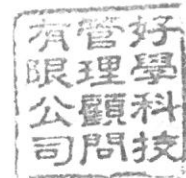 好學科技
管理顧問
有限公司